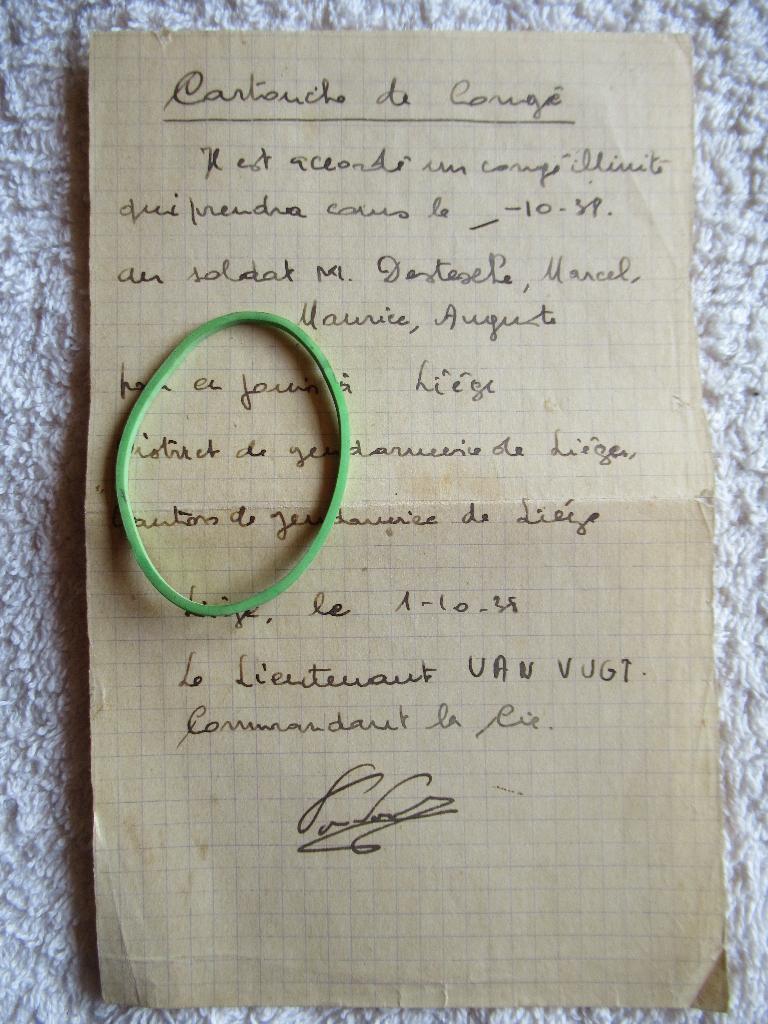 Cartouche de Congé
Il est accordé un congé illimité
qui prendra cours le _-10-38.
au soldat M. Marcel,
Maurice, Auguste
pour en jouir à Liége
District de gendarmerie de Liége,
Canton de gendarmerie de Liége
Liége, le 1-10-38
Le Lieutenant VAN VUGT.
Commandant la Cie.